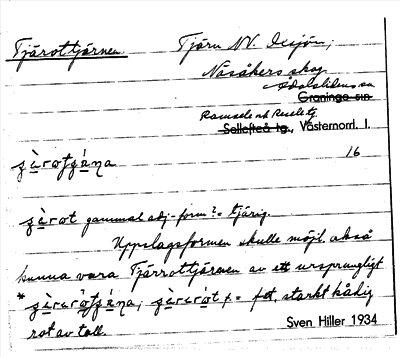 Tjärottjärnen Tjärn NV. Oxsjön;
Näsåkers skog
Ådalslidens sn
Graninge sn
Ramsele och Resele tg
Sollefteå tg., Västernorrl. l.
16
gammal adj-form? = tjärig.
Uppslagsformen skulle möjl. också
kunna vara Tjärrottjärnen av ett ursprungligt
fet, starkt kådig
rot av tall.
Sven Hiller 1934